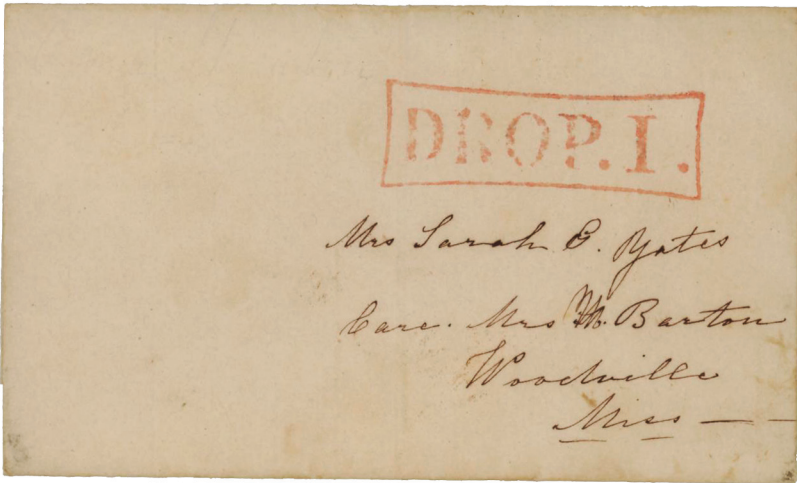 DROP. I.
Mrs Sarah E. Yates
Care. Mrs M. Barton
Woodville
Miss